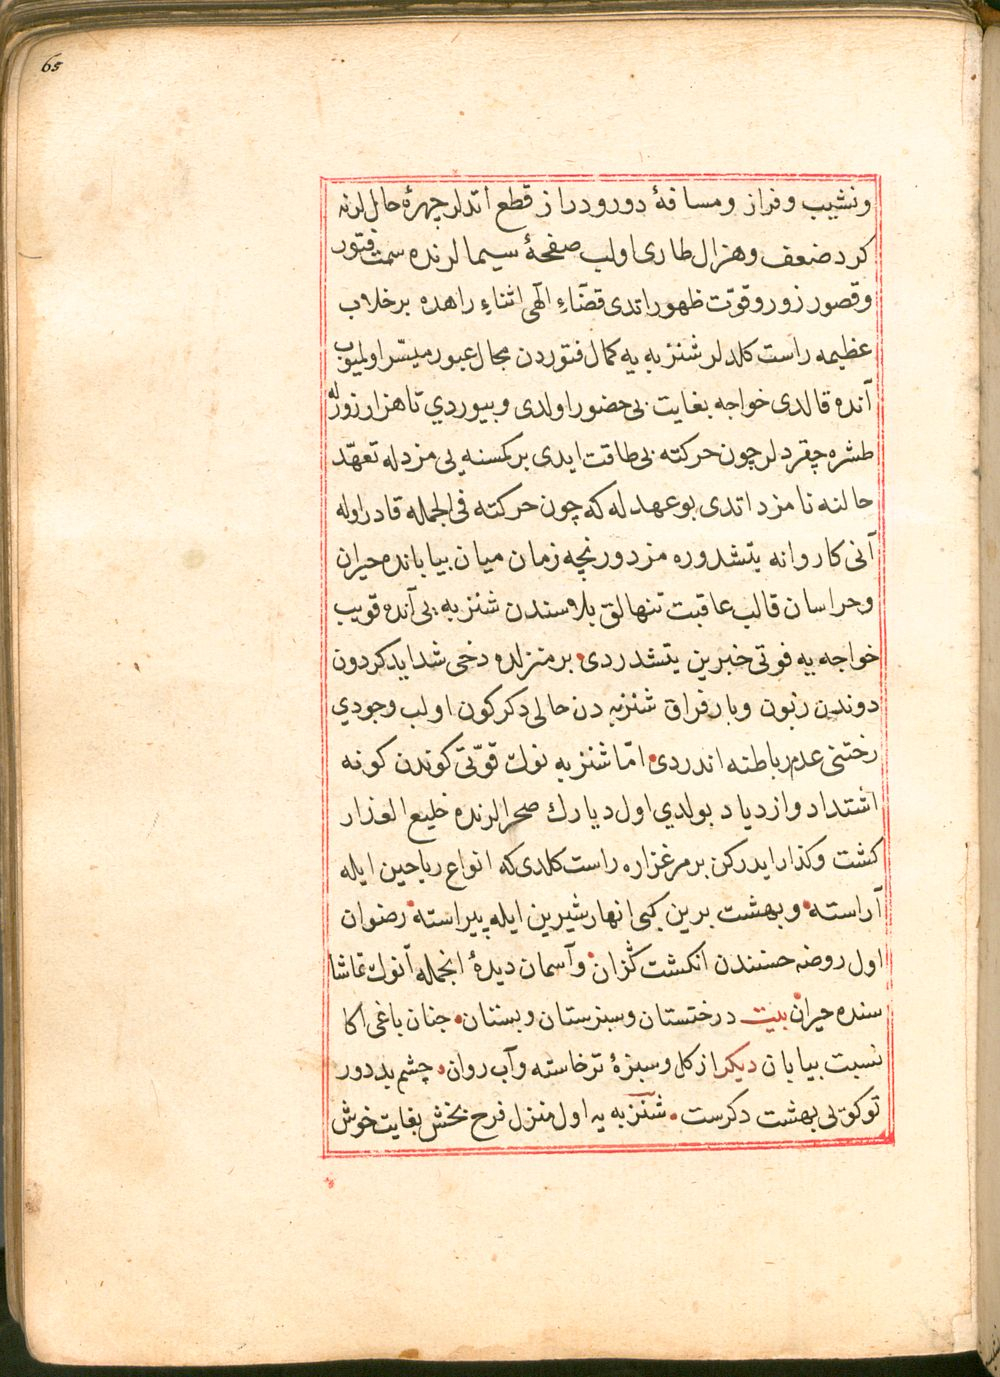 65
ونشیب وفراز ومسافۀ دورودراز قطع اتدلر چهرۀ حاللرنه
کرد ضعف وهزال طاری اولب صفحۀ سیمالرنده سمت فتور
وقصور زور وقوّت ظهور اتدی قضآءِ الٓهی اثناءِ راهده بر خلاب
عظیمه راست کلدلر شنزبه یه کمال فتوردن مجال عبور میسّر اولمیوب
آنده قالدی خواجه بغایت بی حضور اولدی و بیوردي تا هزار زورله
طشره چقردلر چون حرکته بی طاقت ایدی بر کمسنه یی مزدله تعهّد
حالنه نامزد اتدی بو عهدله که چون حرکته فی الجمله قادر اوله
آنی کاروانه یتشدوره مزدور نچه زمان میان بیابانده حیران
وحراسان قالب عاقبت تنهالق بلاسندن شنزبه یی آنده قویب
خواجه یه فوتی خبرین یتشدردی بر منزلده دخی شداید کردون
دوندن زبون وبار فراق شنزبه دن حالی دکرکون اولب وجودي
رختنی عدم رباطنه اندردی امّا شنزبه نوك قوّتی کوندن کونه
اشتداد وازدیاد بولدي اول دیارك صحرالرنده خلیع العذار
کشت وکذار ایدرکن بر مرغزاره راست کلدی که انواع ریاحین ایله
آراسته وبهشت برین کبی انهار شیرین ایله پیراسته رضوان
اول روضه حسنندن انکشت گزان وآسمان دیدۀ انجمله آنوك تماشا
سنده حیران بیت درختستان وسبزستان وبستان جنان باغی اکا
نسبت بیابان دیکر از کل وسبزۀ تر خاسته وآب روان چشم بد دور
توکویی بهشت دکرست شنزبه یه اول منزل فرح بخش بغایت خوش